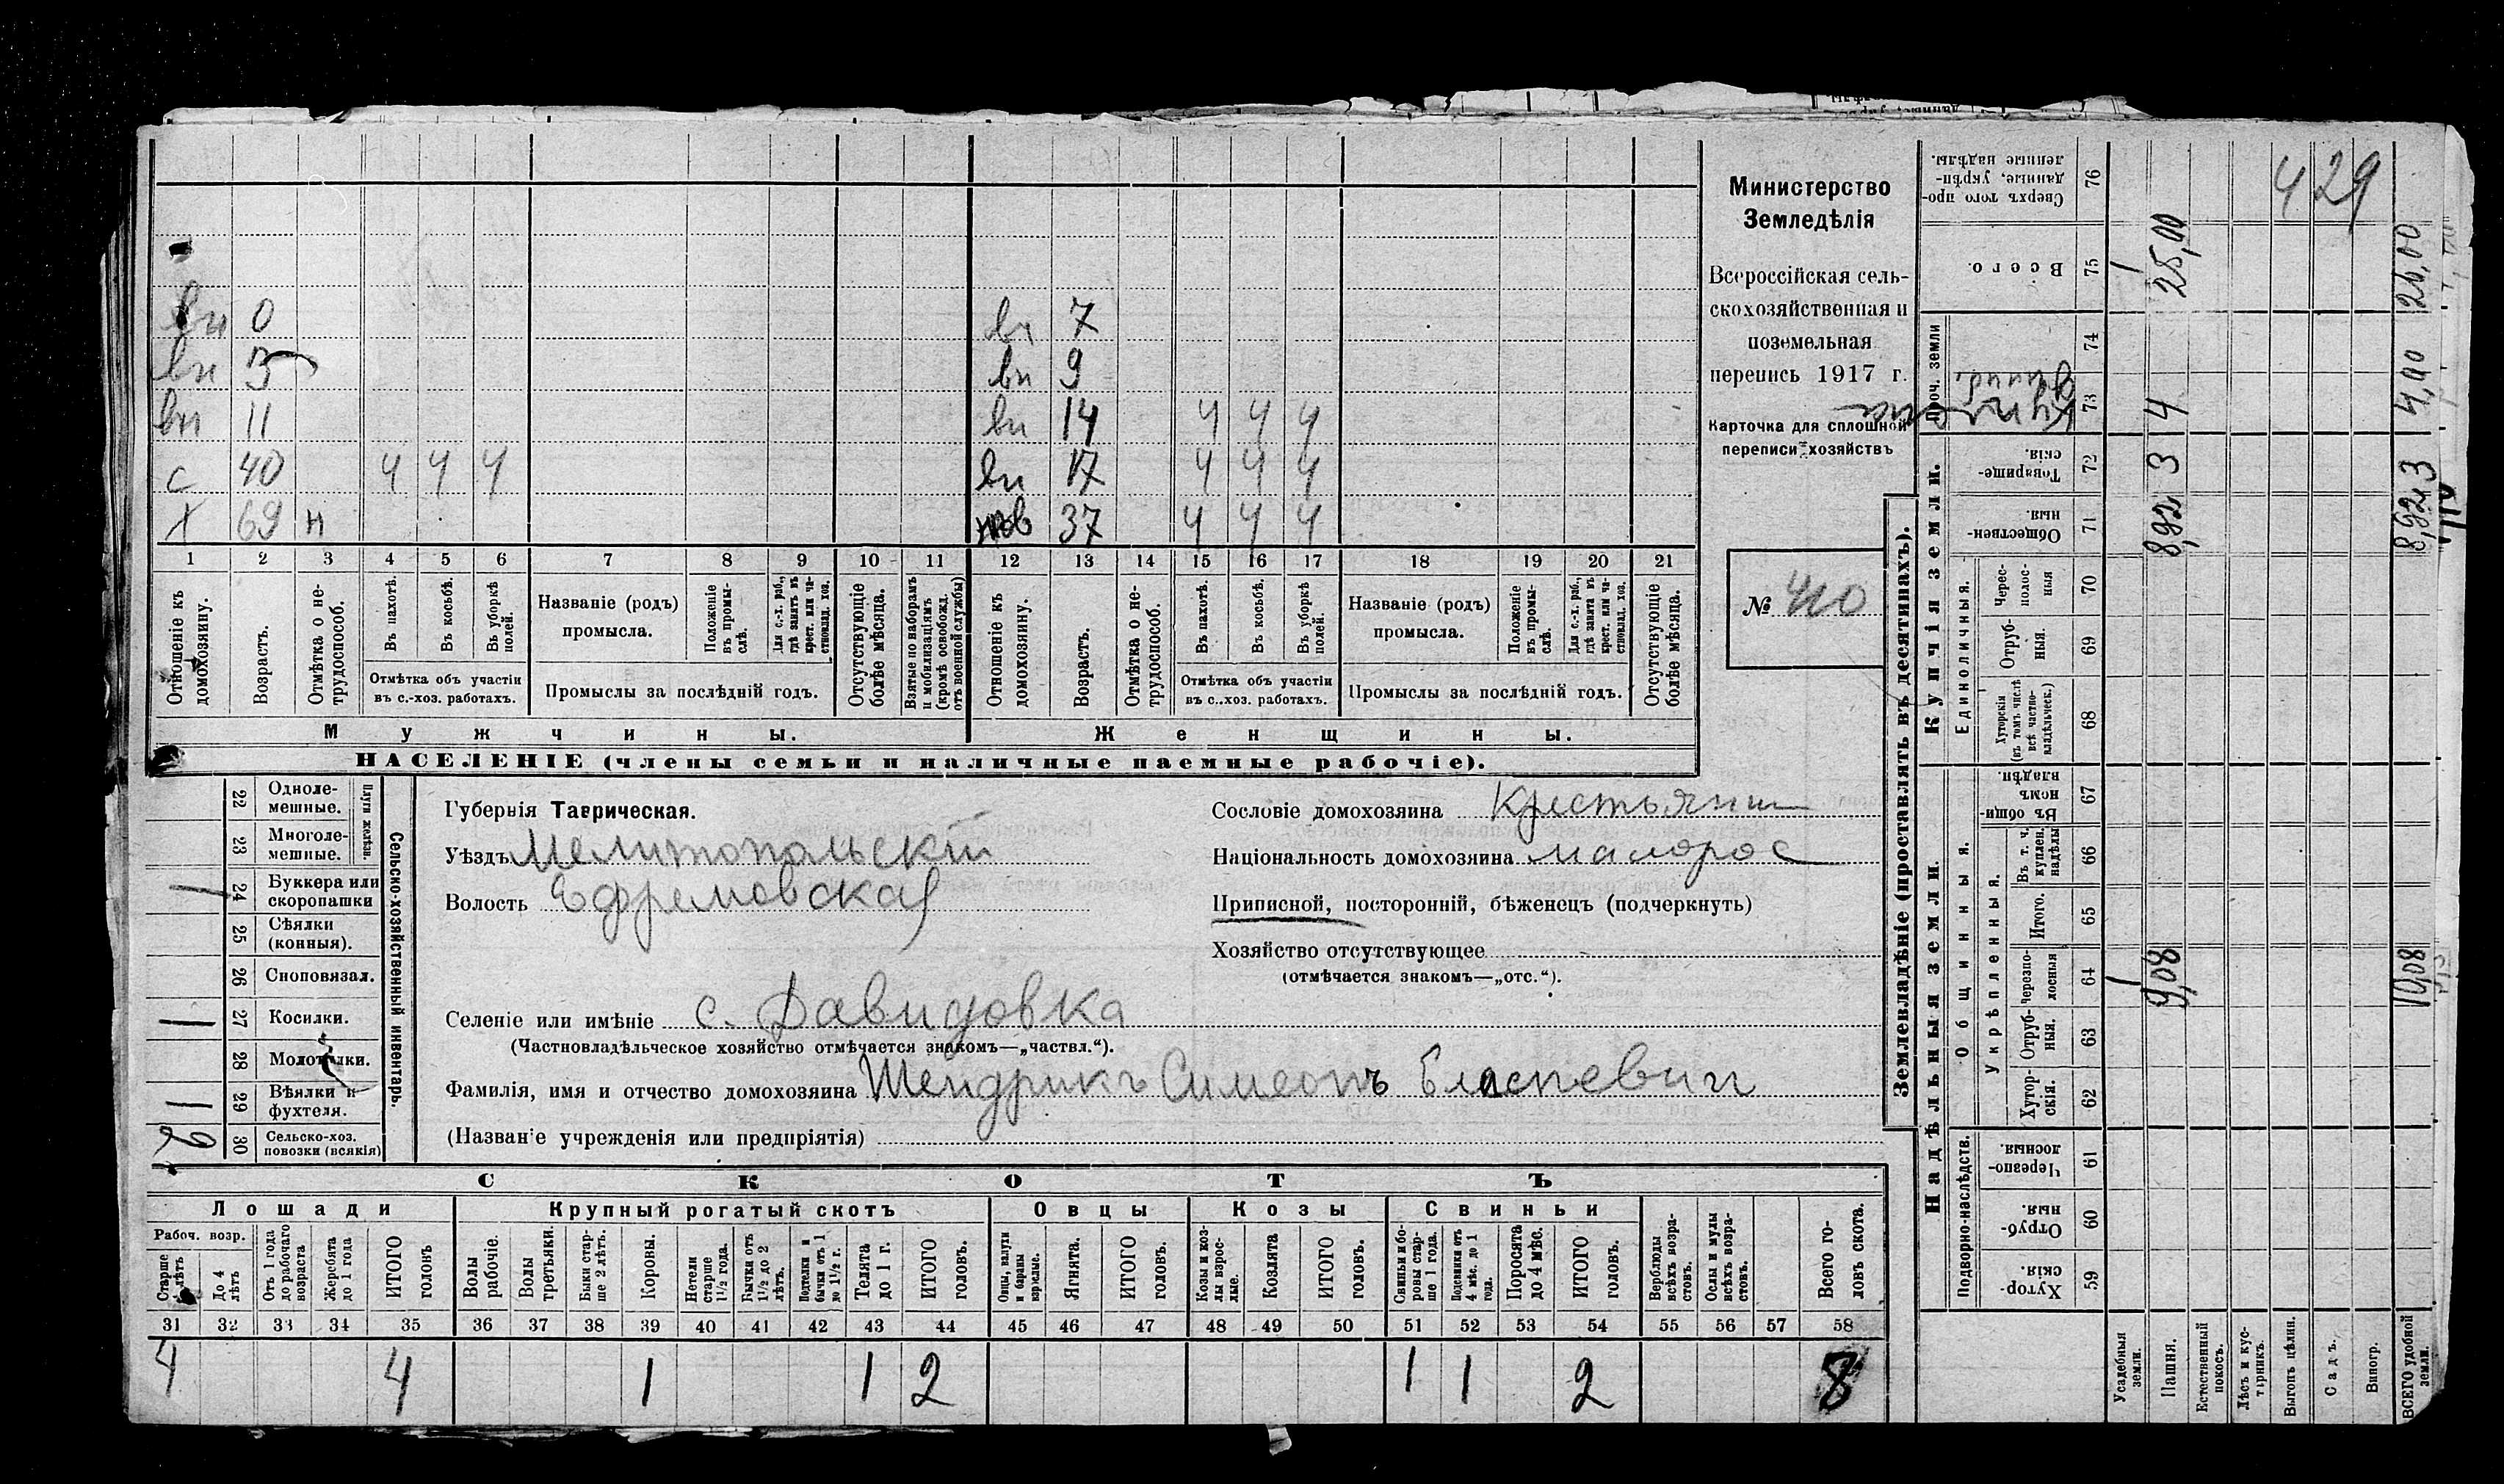 вн 0 вн 7
вн 3 вн 9
вн 11 вн 14 ч ч ч
с 40 ч ч ч вн 17 ч ч ч
х 69 н 37 ч ч ч
1 2 3 4 5 6 7 8 9 10 11 12 13 14 15 16 17 18 19 20 21
Отношеніе къ домохозяину.
Возрастъ.
Отмѣтка о не-
трудоспособ.
Въ пахотѣ.
Въ косьбѣ.
Въ уборкѣ полей.
Отмѣтка объ участіи
въ с.-хоз. работахъ.
Названіе (родъ)
промысла.
Положеніе въ промы-
слѣ.
Для с.-х. раб., гдѣ занятъ въ крест. или ча-
стновлад. хоз.
Промыслы за послѣдній годъ.
Отсутствующіе
болѣе мѣсяца.
Взятые по наборамъ
и мобилизаціямъ
(кромѣ освобожд.
отъ военной службы)
Отношеніе къ
домохозяину.
Возрастъ.
Отмѣтка о не-
трудоспособ.
Въ пахотѣ.
Въ косьбѣ.
Въ уборкѣ
полей.
Отмѣтка объ участіи
въ с.-хоз. работахъ.
Названіе (родъ)
промысла.
Положеніе
въ промы-
слѣ.
Для с.-х. раб.,
гдѣ занята въ
крест. или ча-
стновлад. хоз.
Промыслы за послѣдній годъ.
Отсутствующіе
болѣе мѣсяца.
Мужчины. Женщины.
НАСЕЛЕНІЕ (члены семьи и наличные наемные рабочіе).
Министерство
Земледѣлія
Всероссійская сель-
скохозяйственная и
поземельная
перепись 1917 г.
Карточка для сплошной
переписи хозяйствъ
№ 410
22 Одноле-
мешные.
23 Многоле-
мешные.
Плуги желѣзн.
1 24 Буккера или
скоропашки
25 Сѣялки
(конныя).
26 Сноповязал.
1 27 Косилки.
28 Молотилки.
1 29 Вѣялки и
фухтеля.
2 30 Сельско-хоз.
повозки (всякія)
Сельско-хозяйственный инвентарь.
Губернія Таврическая.
Уѣздъ Мелитопольскій
Волость Ефремовская
Селеніе или имѣніе с. Давидовка
(Частновладѣльческое хозяйство отмѣчается знакомъ—„частвл.“).
Фамилія, имя и отчество домохозяина Шендрикъ Симеонъ
(Названіе учрежденія или предпріятія)
Сословіе домохозяина Крестьянин
Національность домохозяина малорос
Приписной, посторонній, бѣженецъ (подчеркнуть)
Хозяйство отсутствующее
(отмѣчается знакомъ—„отс.“).
СКОТЪ
Лошади Крупный рогатый скотъ Овцы Козы Свиньи
Рабоч. возр.
Старше
лѣтъ
До 4
лѣтъ
Отъ 1 года
до рабочаго
возраста
Жеребята
до 1 года
ИТОГО
головъ
Волы
рабочіе.
Волы
третьяки.
Быки стар-
ше 2 лѣтъ.
Коровы.
Нетели
старше
1½ года.
Бычки отъ
1½ до 2
лѣтъ.
Подтелки и
бычки отъ 1
до 1½ г.
Телята
до 1 г.
ИТОГО
головъ.
Овцы, валухи
и бараны
взрослые.
Ягнята.
ИТОГО
головъ.
Козы и коз-
лы взрос-
лые.
Козлята
ИТОГО
головъ.
Свиньи и бо-
ровы стар-
ше 1 года.
Подсвинки отъ
4 мѣс. до 1
года.
Поросята
до 4 мѣс.
ИТОГО
головъ.
Верблюды
всѣхъ возра-
стовъ.
Ослы и мулы
всѣхъ возра-
стовъ.
Всего го-
ловъ скота.
31 32 33 34 35 36 37 38 39 40 41 42 43 44 45 46 47 48 49 50 51 52 53 54 55 56 57 58
4 4 1 1 2 1 1 2 8
Землевладѣніе (проставлять въ десятинахъ).
Надѣльныя земли. Купчія земли. Проч. земли
Подворно-наслѣдств.
Общинныя.
Укрѣпленныя.
Единоличныя.
Хутор-
скія. 59
Отруб-
ныя. 60
Черезпо-
лосныя 61
Хутор-
скія. 62
Отруб-
ныя. 63
Черезпо-
лосныя 64
Итого. 65
Въ т. ч.
куплен.
надѣлы 66
Въ общин-
номъ
владѣн. 67
Хуторскія
(въ томъ числѣ
всѣ частно-
владѣльческ.) 68
Отруб-
ныя. 69
Черес-
полос-
ныя 70
Обществен-
ныя. 71
Товарище-
скія. 72
73
74
Всего. 75
Сверхъ того про-
данные, укрѣп-
ленные надѣлы. 76
Усадебныя
земли. 1 1
Пашня. 9,08 8,92 3 4 25,00
Естественный
покосъ.
Лѣсъ и кус-
тарникъ.
Выгонъ цѣлин.
Садъ.
Виногр.
ВСЕГО удобной
земли. 10,08 8,92 3 4,00 26,00
429